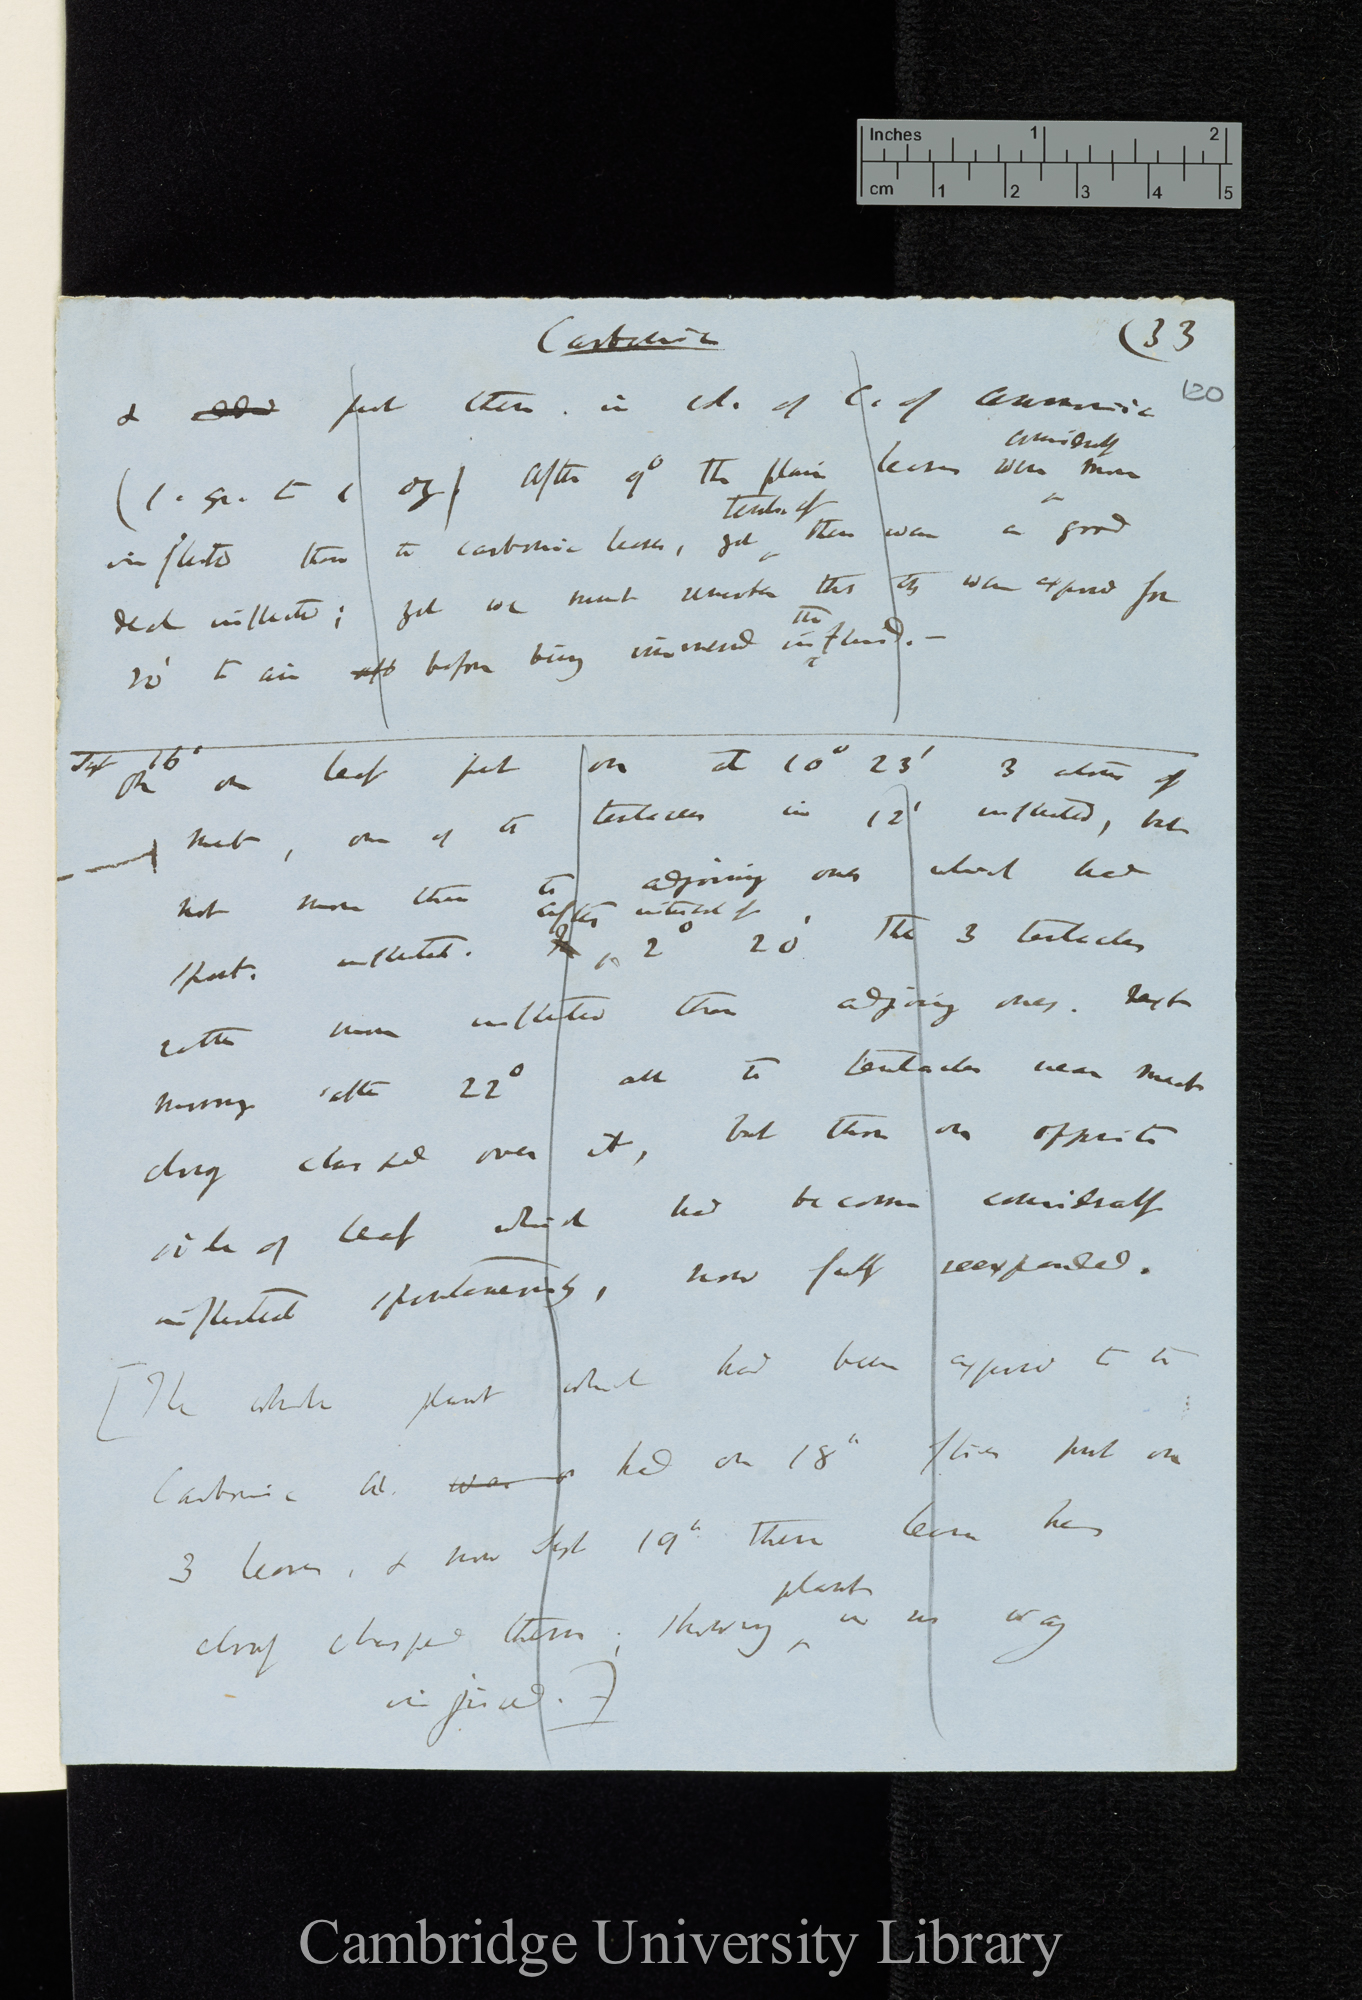 Inches 1 2
cm 1 2 3 4 5
Carbonic (33
120
& put them in of C. of ammonia
considerably
(1. gr. to 1 oz) After 9° the plain leaves were more
tentacles of
inflected than the carbonic leaves, yet these were a good
deal inflected; yet we must remember that they were exposed for
the
20' to air before being immersed in fluid. —
Sept 16'
On one leaf put on at 10° 23' 3 atoms of
meat, one of the tentacles in 12' inflected, but
not more than the adjoining ones which had
after interval of
spont. inflected. 2° 20' The 3 tentacles
rather more inflected than adjoining ones. Next
morning after 22° all the tentacles near meat
closely clasped over it, but those on opposite
side of leaf which had become considerably
inflected spontaneously, now fully reexpanded.
[The whole plant which had been exposed to the
Carbonic A. was had on 18th flies put on
3 leaves, & now Sept 19th these leaves have
plant
closely clasped them; showing in no way
injured.]
Cambridge University Library